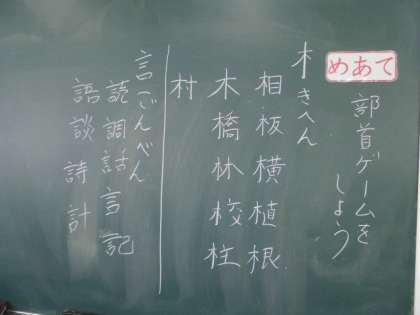 めあて
部首ゲームを
しよう
木きへん
相板横植根
木橋林校柱
村
言ごんべん
読調話言記
語談詩計